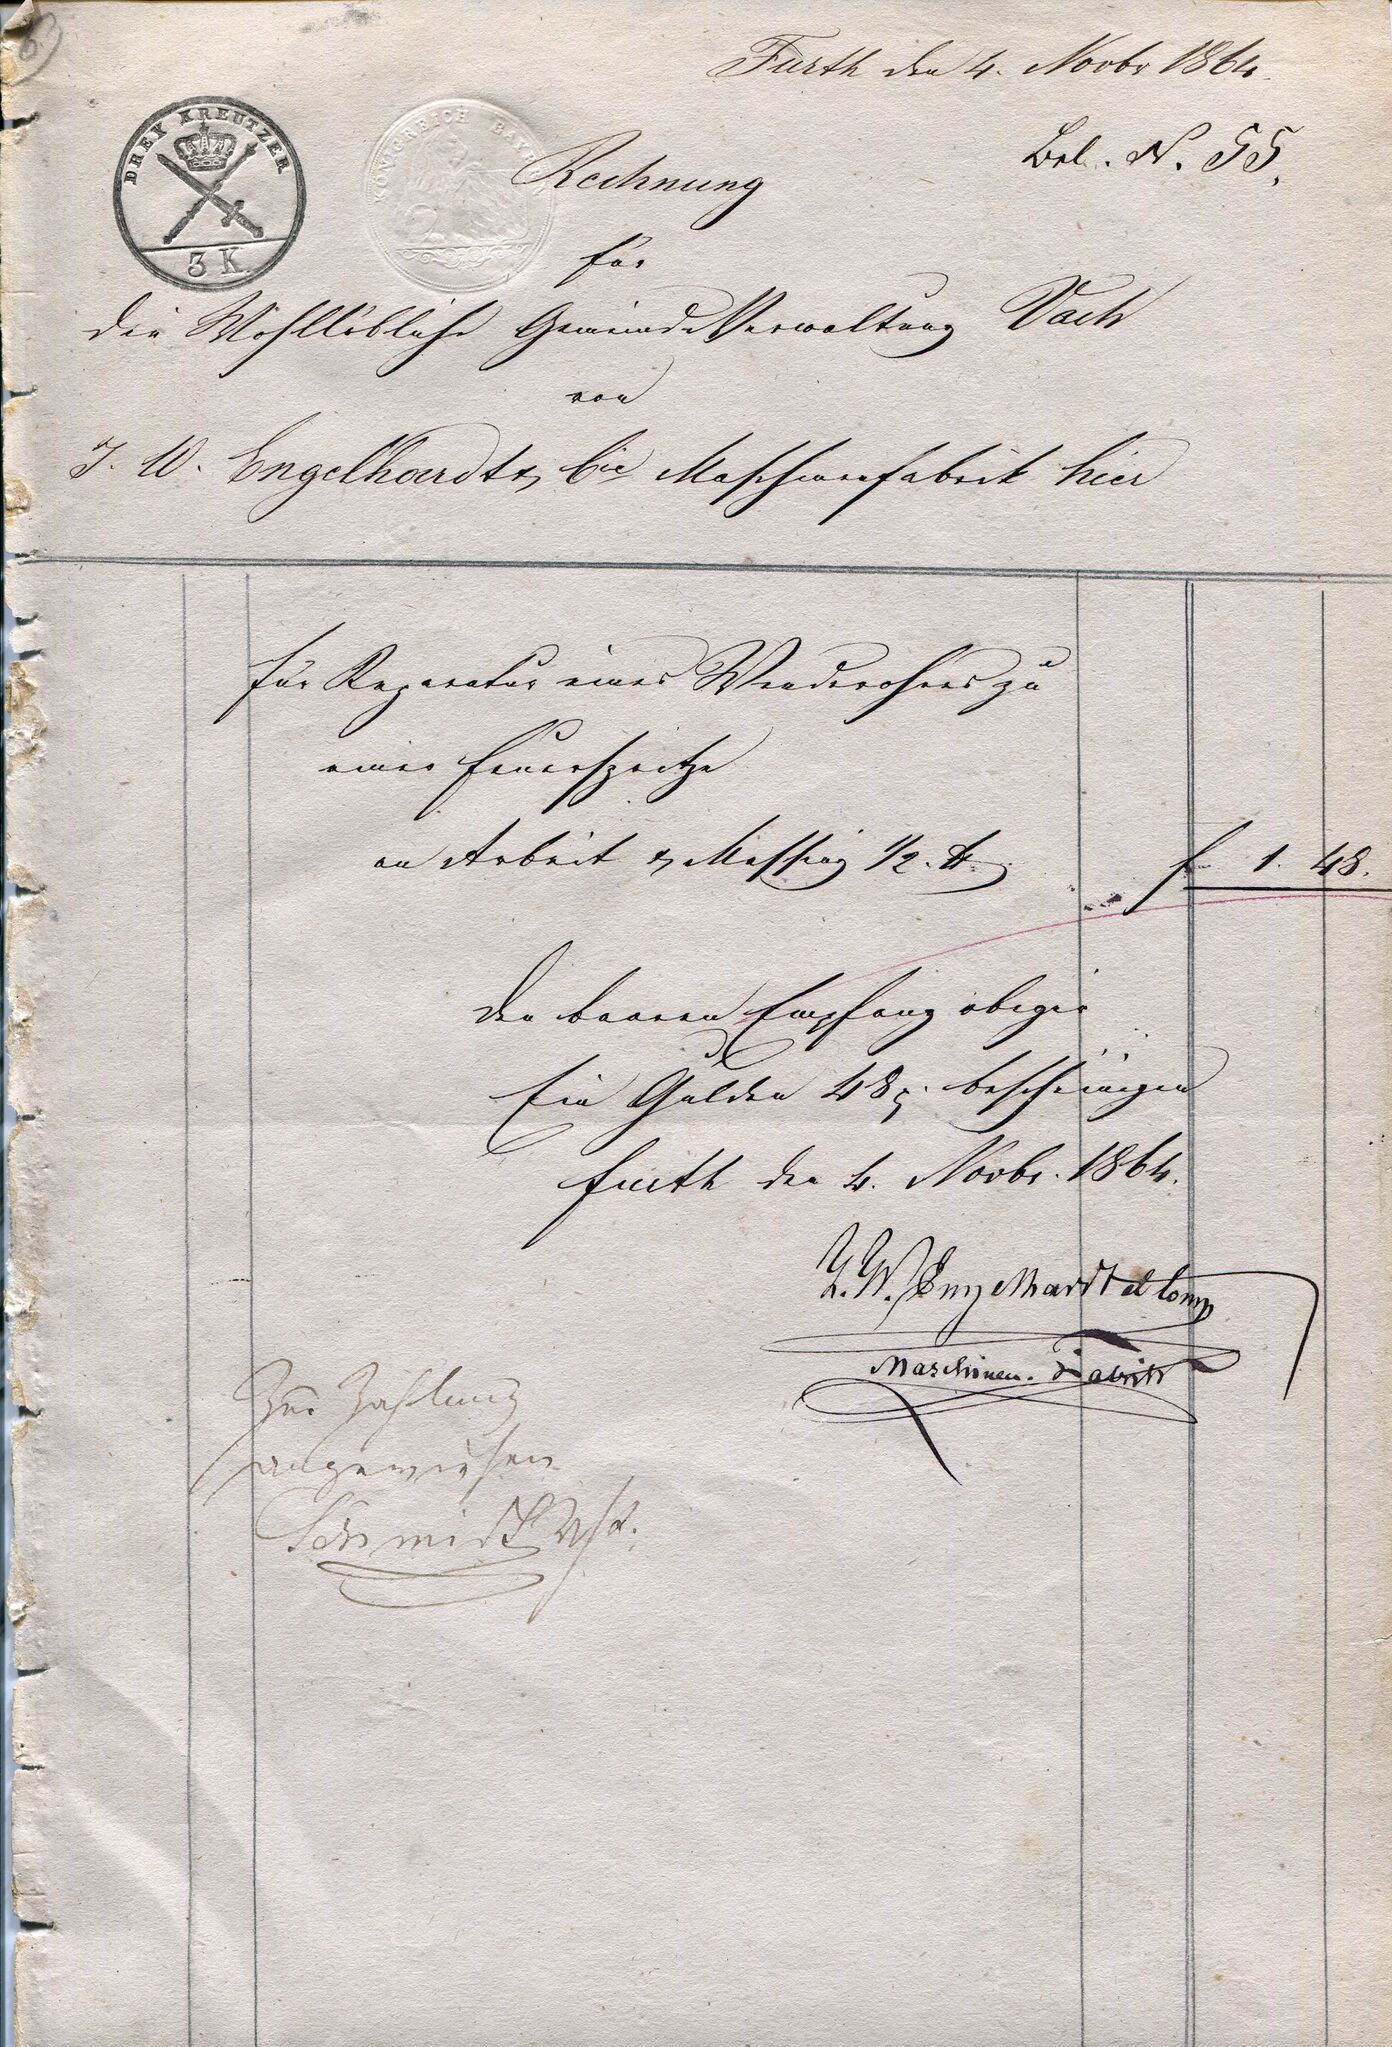 Fürth den 4. Novbr 1864.
DREY KREUTZER
3 K.
KÖNIGREICH BAYERN
Bel. N. 55.
Rechnung
für
die Wohllöbliche Gemeinde Verwaltung Vach
von
J. W. Engelhardt & Cie Maschinenfabrik hier
für Reparatur eines Wenderohres zu
einer Feuerspritze
an Arbeit & Messing 1/2 ℔
f 1. 48.
Den baaren Empfang obiger
Ein Gulden 48 bescheinigen
Fürth den 4. Novbr. 1864.
J. W. Engelhardt et Comp
Maschinen-Fabrik
Zur Zahlung
angewiesen
Schmidt Vst.